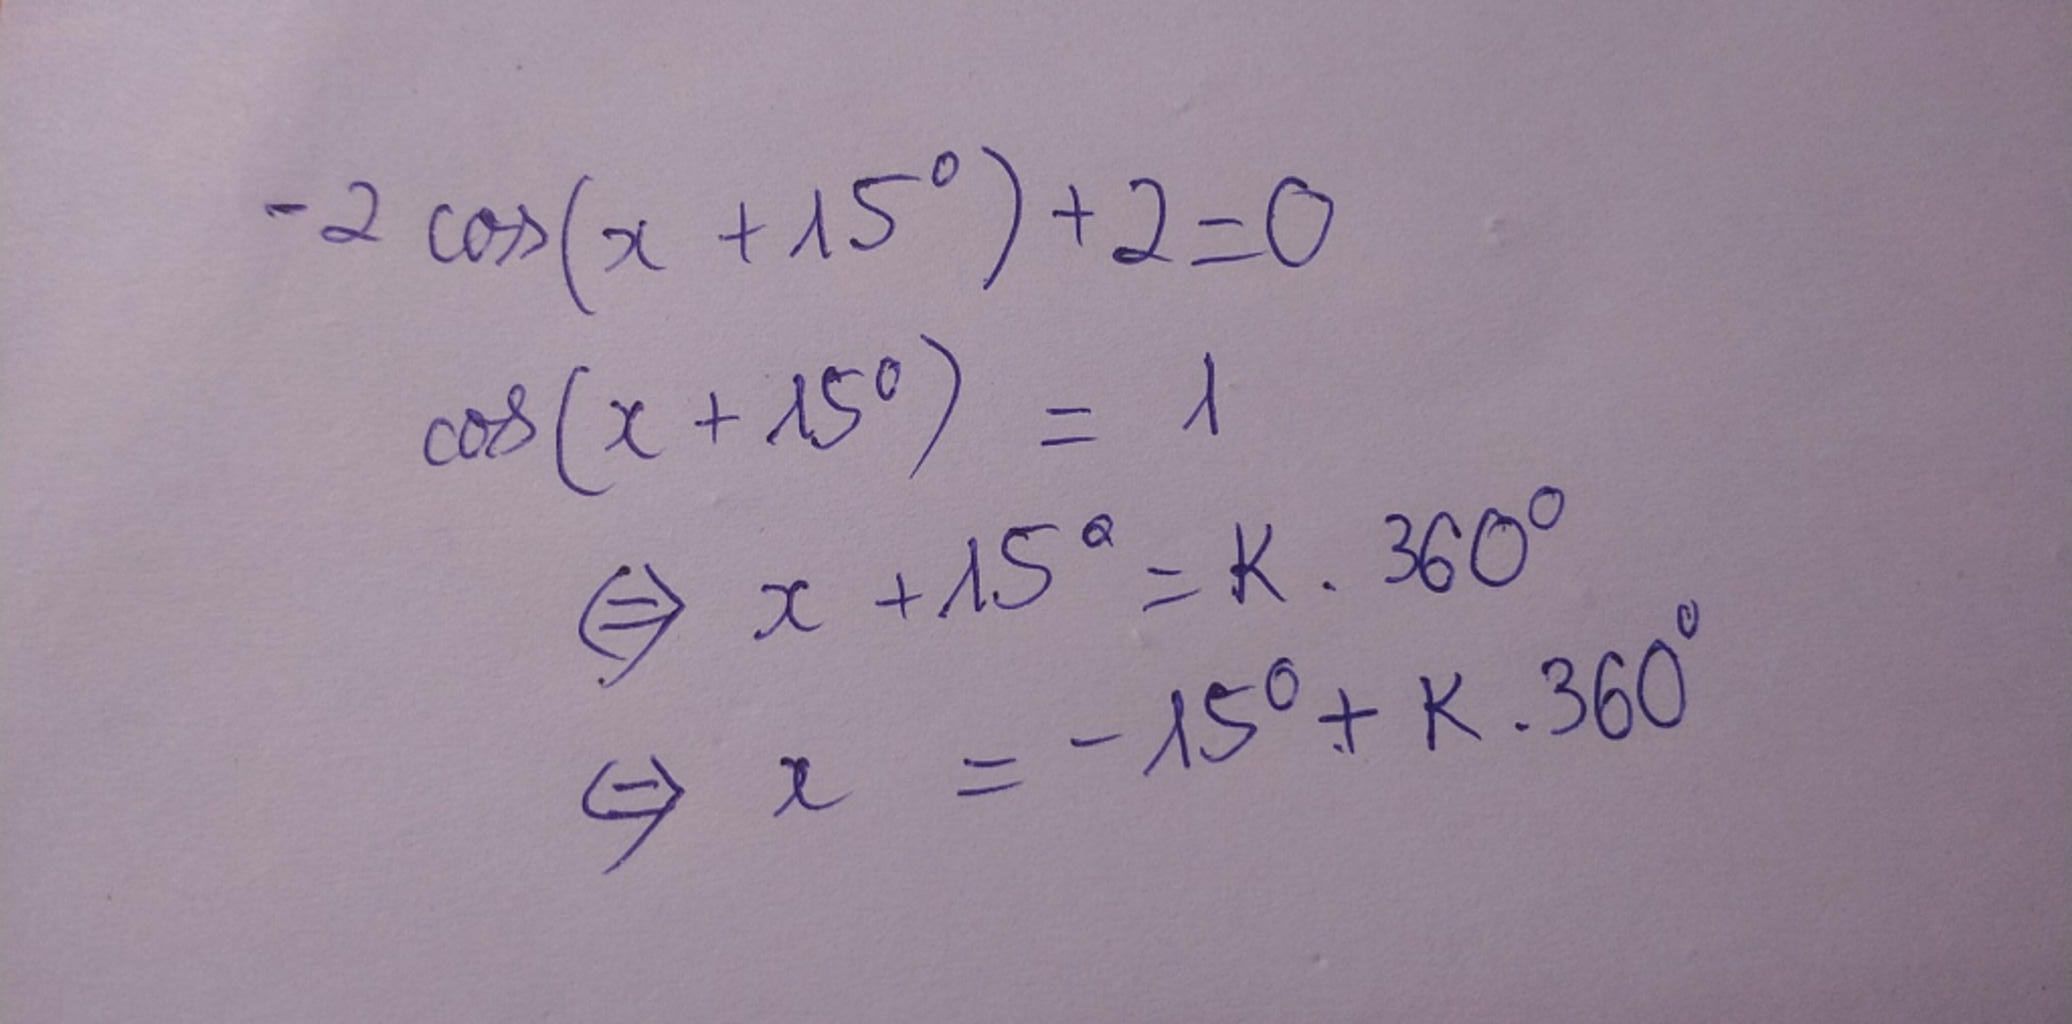 -2 cos(x + 15⁰) + 2 = 0
cos(x + 15⁰) = 1
⇔ x + 15⁰ = K . 360⁰
⇔ x = -15⁰ + K . 360⁰